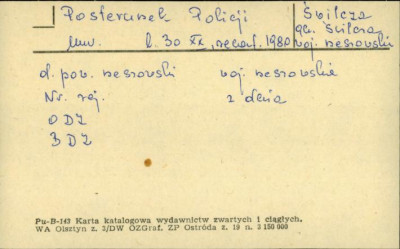 Posterunek Policji Świlcza
gm. Świlcza
mur. l. 30 XX, 1980 woj. rzeszowski
d. pow. rzeszowski woj. rzeszowskie
Nr. rej. z dnia
ODZ
3DZ
Pu-B-143 Karta katalogowa wydawnictw zwartych i ciągłych.
WA Olsztyn z. 3/DW OZGraf. ZP Ostróda z. 19 n. 3 150 000